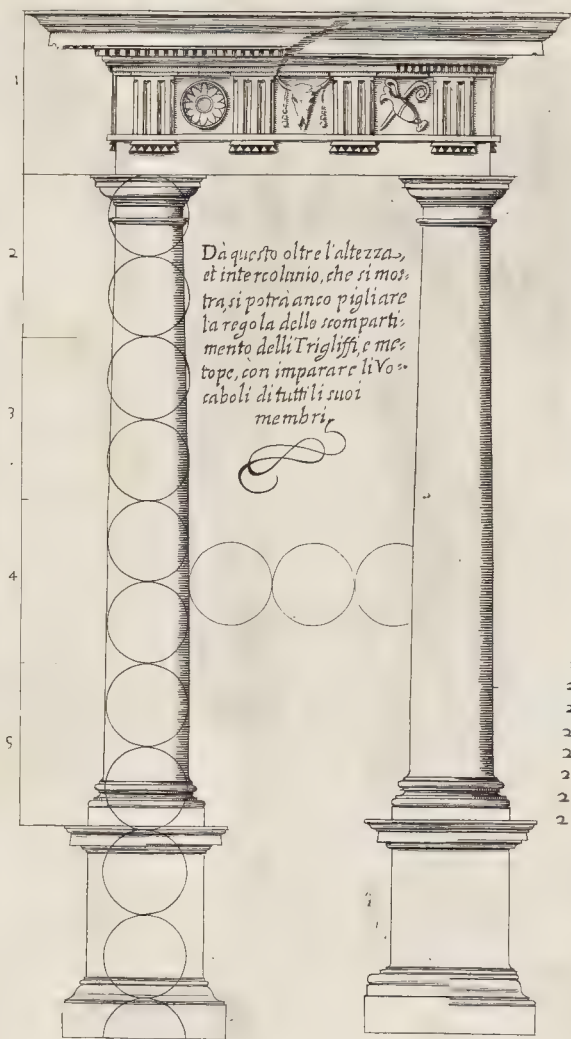 1
2
Dà questo oltre l'altezza,
et intercolunio, che si mos:
tra, si potrà anco pigliare
la regola dello scomparti:
mento delli Trigliffi, e me:
tope, con imparare li Vo:
caboli di tutti li suoi
membri,
3
4
5
2
2
2
2
2
2
2